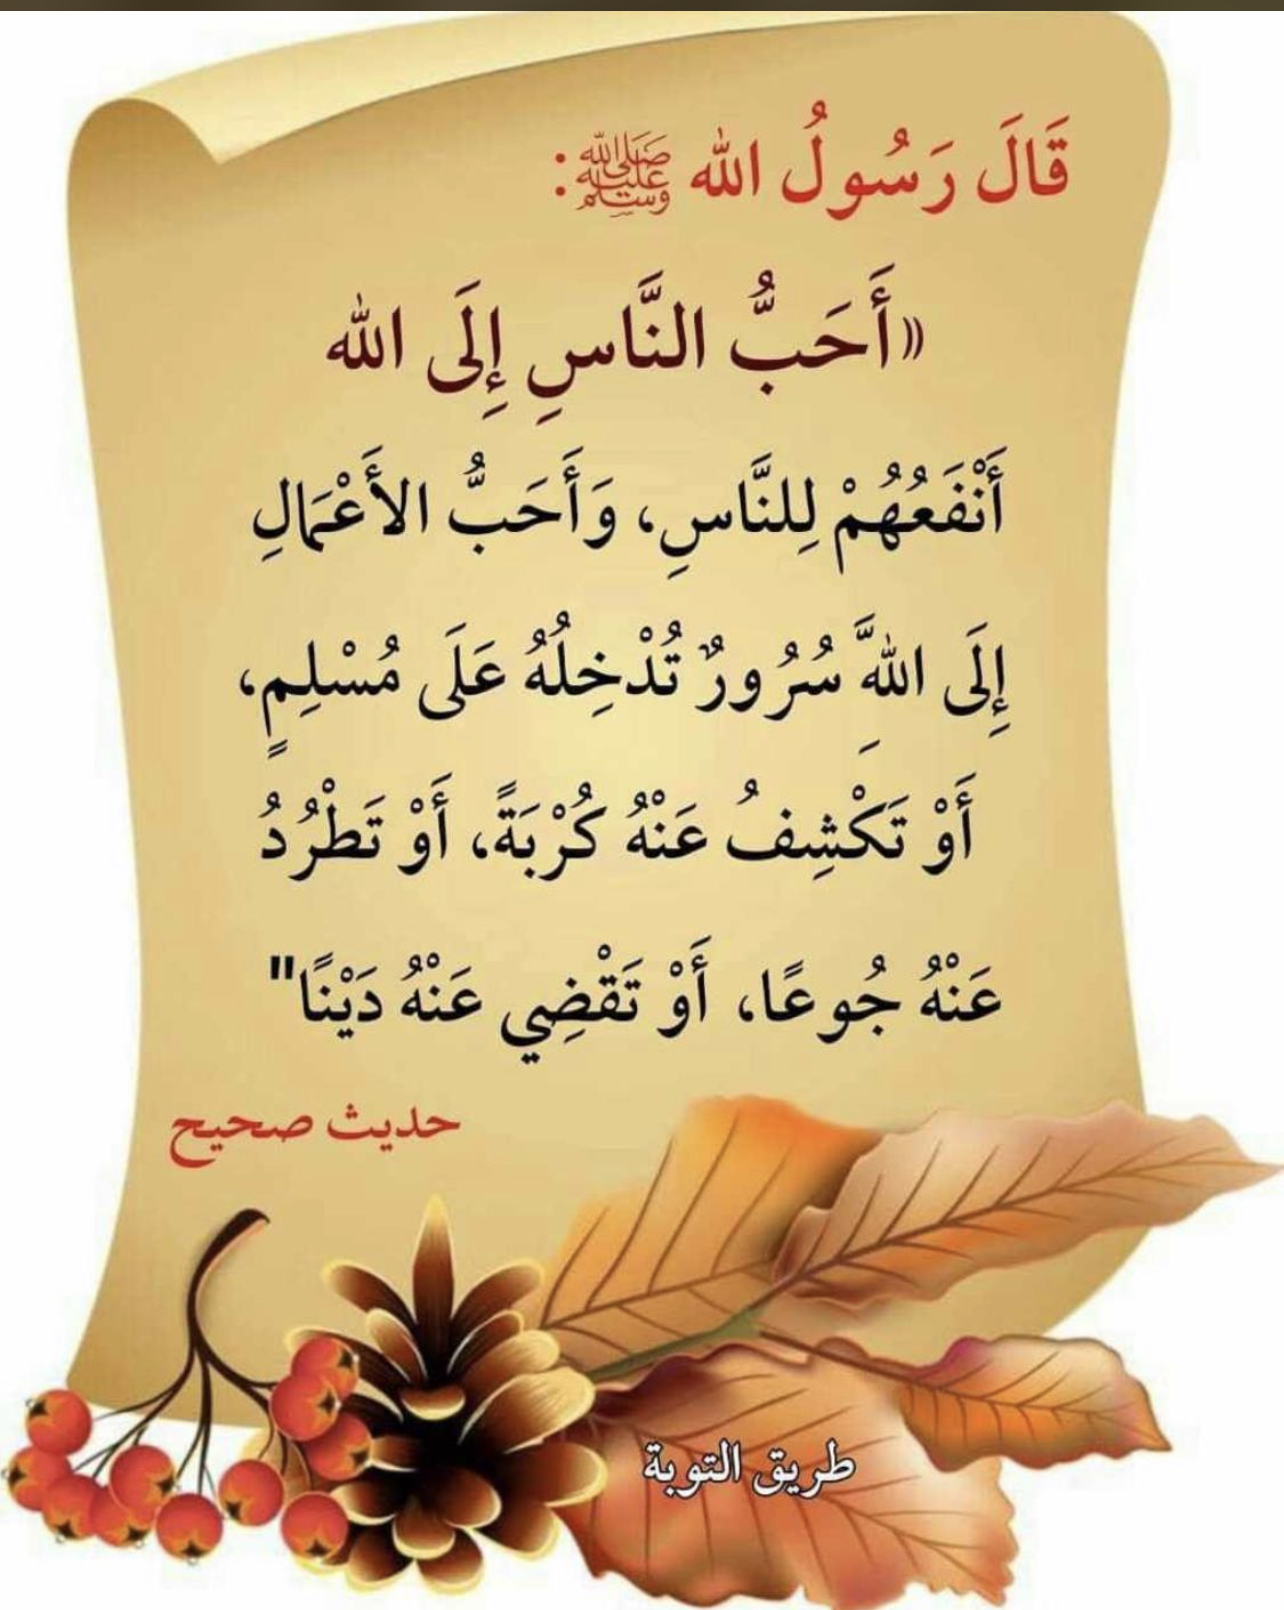 قَالَ رَسُولُ الله ﷺ:
«أَحَبُّ النَّاسِ إِلَى الله
أَنْفَعُهُمْ لِلنَّاسِ، وَأَحَبُّ الأَعْمَالِ
إِلَى اللهَِّ سُرُورٌ تُدْخِلُهُ عَلَى مُسْلِمٍ،
أَوْ تَكْشِفُ عَنْهُ كُرْبَةً، أَوْ تَطْرُدُ
عَنْهُ جُوعًا، أَوْ تَقْضِي عَنْهُ دَيْنًا"
حديث صحيح
طريق التوبة